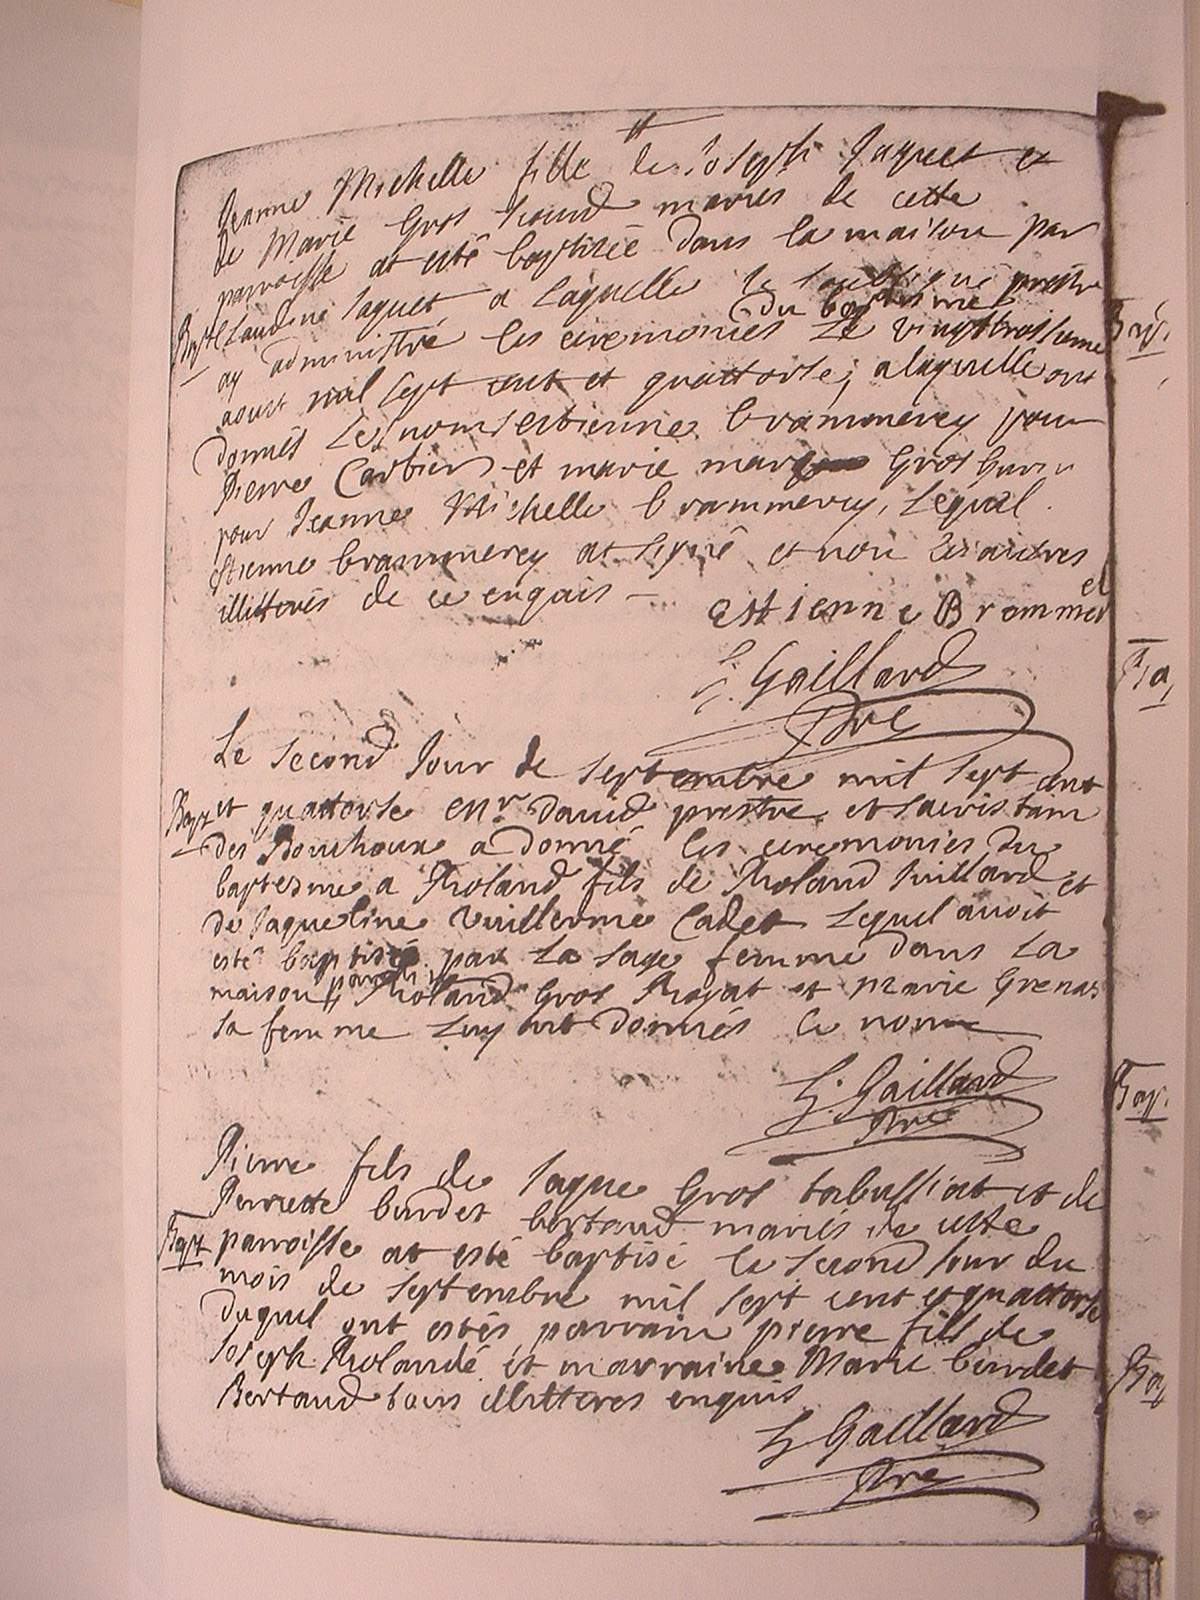 Jeanne Michelle fille de Joseph Jaquet et
de Marie Gros mariés de cette
parroisse at esté baptisée dans la maison par
Bapt Claudine Jaquet a laquelle le soubsigné prestre
du baptesme
ay administré les ceremonies le vingttroisieme
aoust mil sept cent et quattorse, a laquelle ont
donnés le nom estienne brammerey pour
Pierre Carbier et marie Gros
pour Jeanne Michelle brammerey, lequel
estienne brammerey at signé et non les autres
illitterés de ce enquis
estienne Brommer
el
Gaillard
Pre
Le second Jour de septembre mil sept cent
Bapt et quattorse Mr david prestre et sacristain
des Bouchoux a donné les ceremonies du
baptesme a Roland fils de Roland Juillard et
de Jaqueline Vuillerme Cadet lequel avoit
esté baptisé par la sage femme dans la
maison Roland Gros Rogat et marie Grenar
sa femme luy ont donnés le nom
Gaillard
Pre
Pierre fils de Jaque Gros tabussiat et de
Pierrette burdet bertaud mariés de cette
Bapt parroisse at esté baptisé le second Jour du
mois de septembre mil sept cent et quattorse
duquel ont estés parrain pierre fils de
Joseph Rolandé et marraine Marie burdet
Bertaud tous illitteres enquis
Gaillard
Pre
Bap.
Bap.